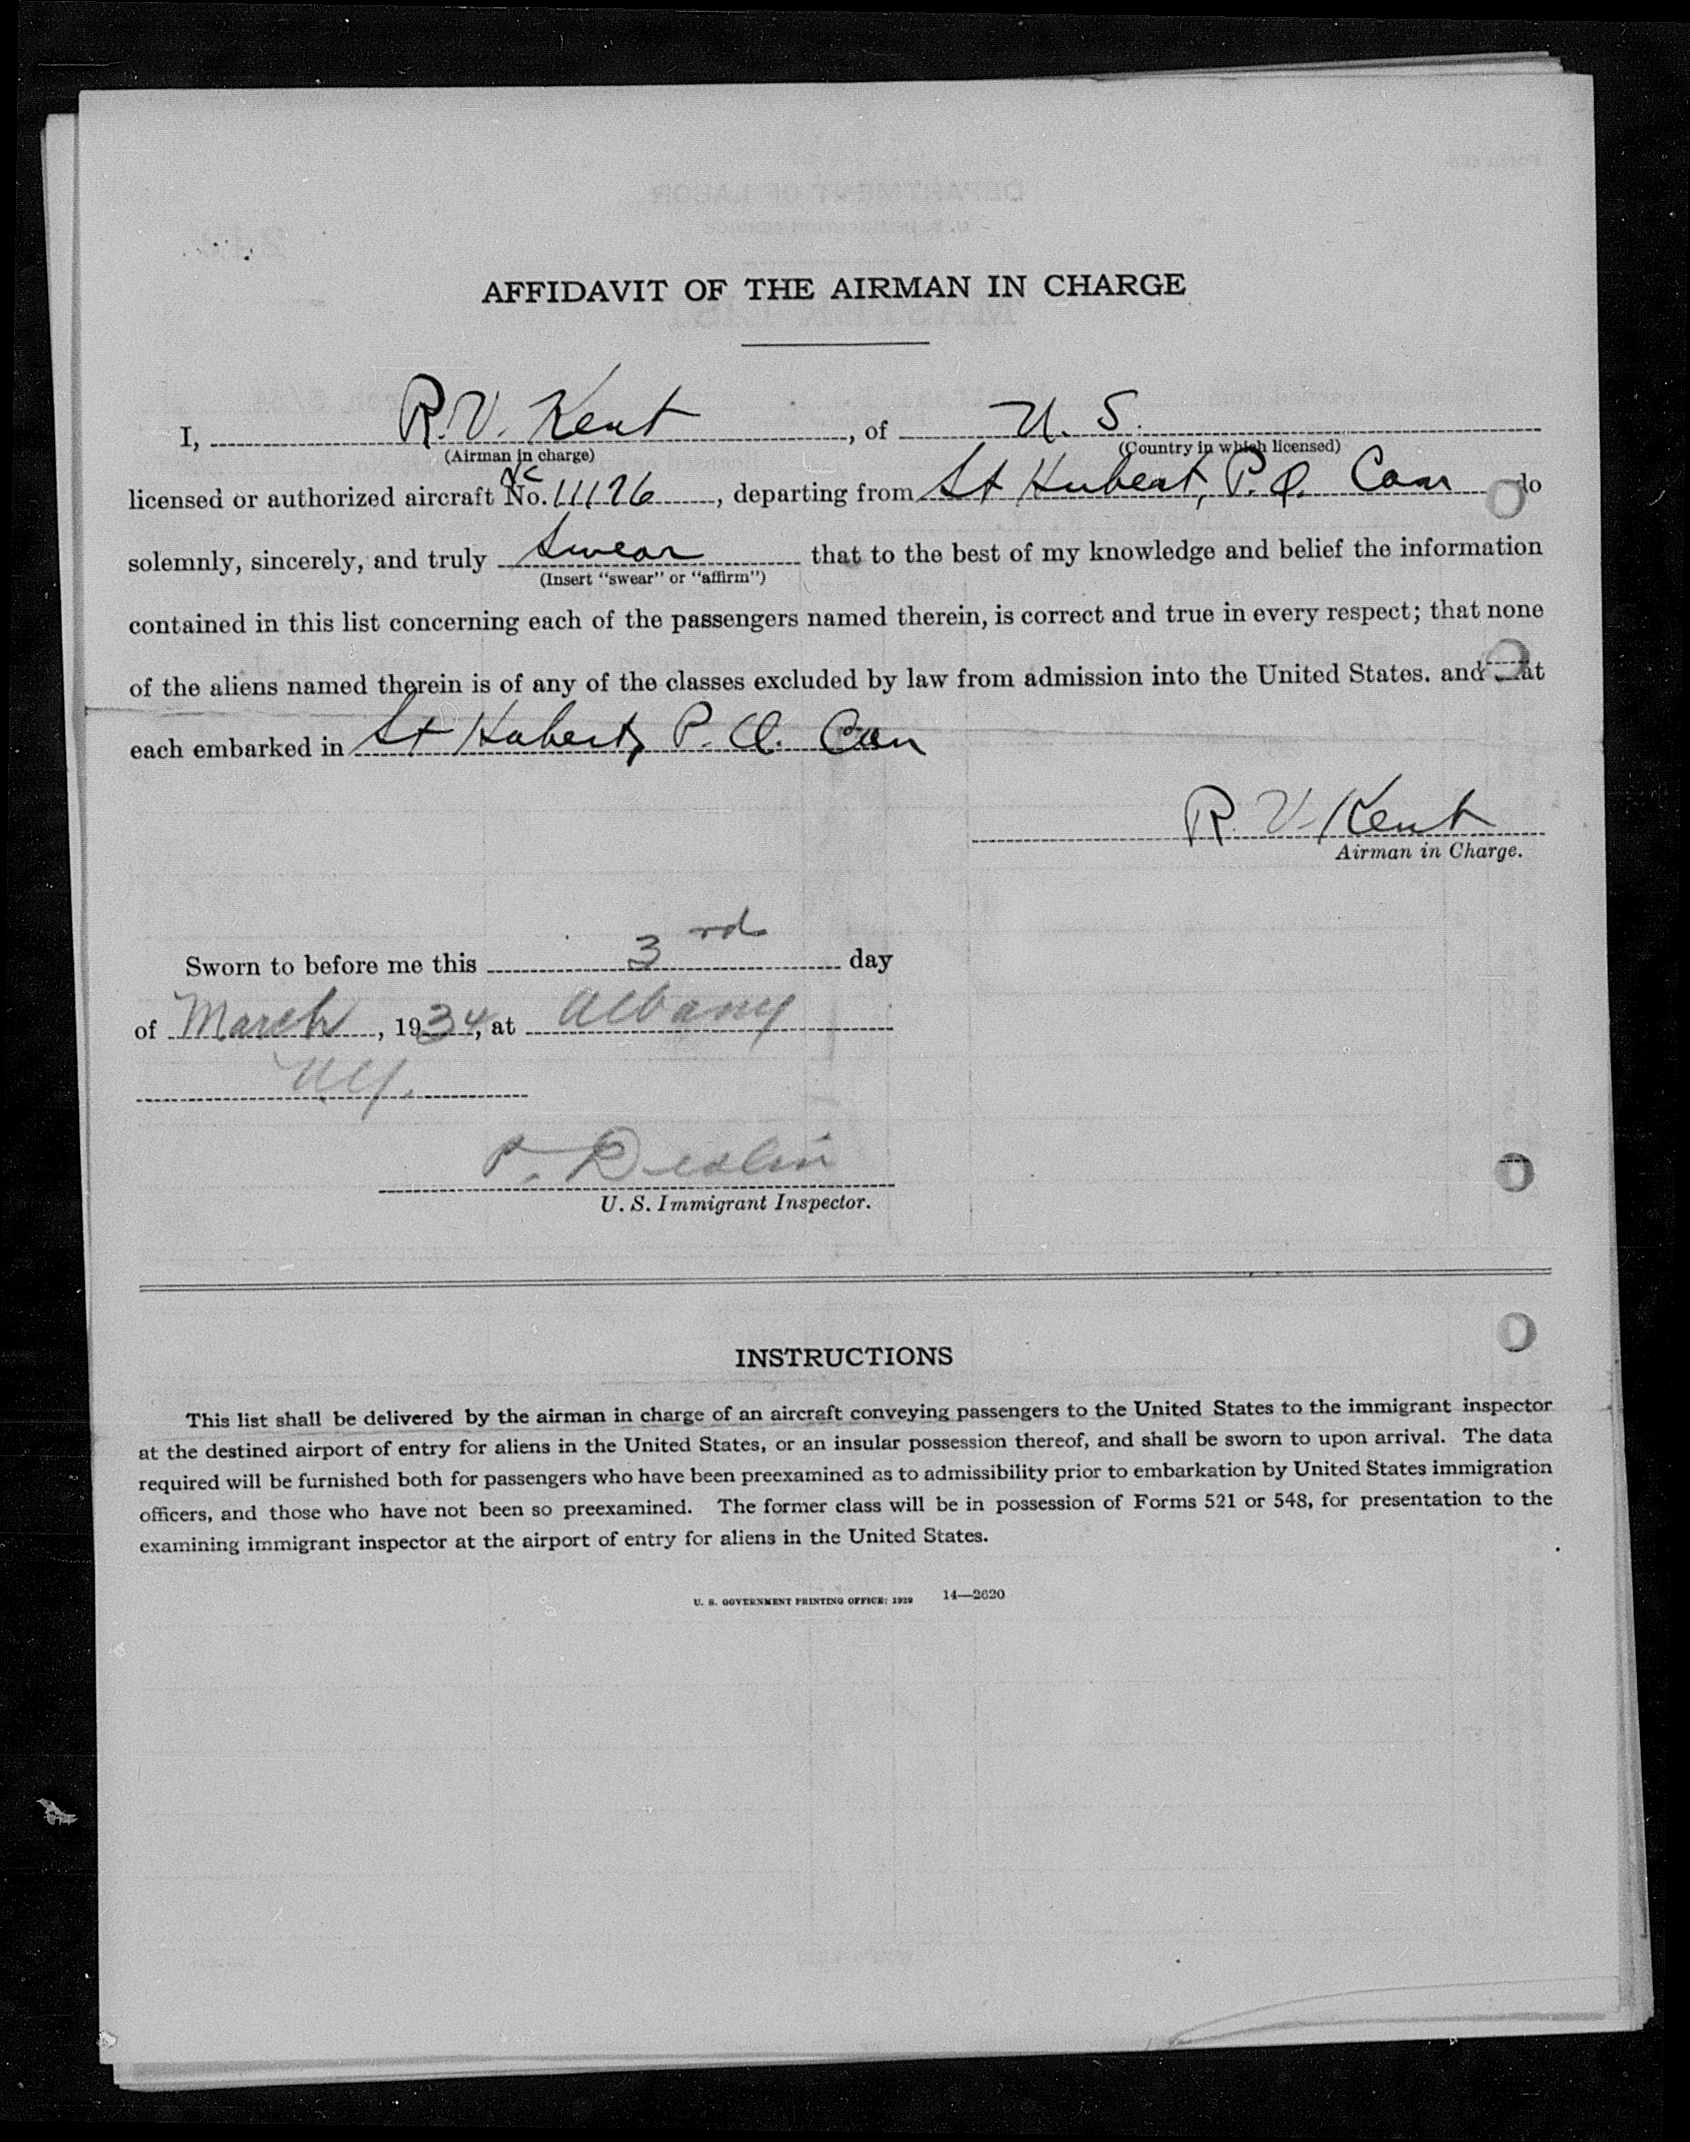 AFFIDAVIT OF THE AIRMAN IN CHARGE
I, R. V. Kent, of U. S.
(Airman in charge) (Country in which licensed)
NC
licensed or authorized aircraft No. 11176, departing from St Hubert, P. Q. Can do
solemnly, sincerely, and truly swear that to the best of my knowledge and belief the information
(Insert "swear" or "affirm")
contained in this list concerning each of the passengers named therein, is correct and true in every respect; that none
of the aliens named therein is of any of the classes excluded by law from admission into the United States. and that
each embarked in St Hubert, P. Q. Can
R. V. Kent
Airman in Charge.
Sworn to before me this 3rd day
of March, 1934, at Albany
NY.
U. S. Immigrant Inspector.
INSTRUCTIONS
This list shall be delivered by the airman in charge of an aircraft conveying passengers to the United States to the immigrant inspector
at the destined airport of entry for aliens in the United States, or an insular possession thereof, and shall be sworn to upon arrival. The data
required will be furnished both for passengers who have been preexamined as to admissibility prior to embarkation by United States immigration
officers, and those who have not been so preexamined. The former class will be in possession of Forms 521 or 548, for presentation to the
examining immigrant inspector at the airport of entry for aliens in the United States.
U. S. GOVERNMENT PRINTING OFFICE: 1929 14—2620